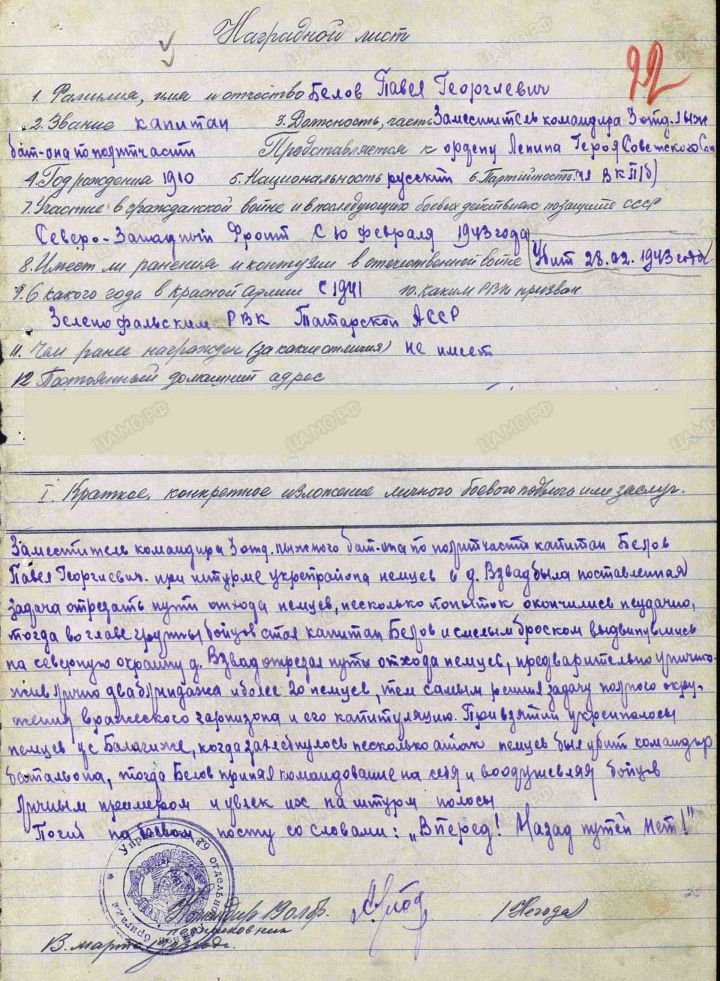 Наградной лист
22
1. Фамилия, имя и отчество Белов Павел Георгиевич
2. Звание капитан 3. Должность, часть Заместитель командира 3 отд. лыж
бат-она по политчасти Представляется к ордену Ленина Героя Советского Союз
4. Год рождения 1910 5. Национальность русский 6. Партийность: чл ВКП(б)
7. Участие в гражданской войне и в последующих боевых действиях по защите СССР
Северо-Западный Фронт с 10 февраля 1943 года
8. Имеет ли ранения и контузии в отечественной войне Убит 23.02.1943 года
9. С какого года в Красной Армии с 1941 10. Каким РВК призван
Зеленодальским РВК Татарской АССР
11. Чем ранее награжден (за какие отличия) не имеет
12 Постоянный домашний адрес
I. Краткое, конкретное изложение личного боевого подвига или заслуг.
Заместитель командира 3 отд. лыжного бат-она по политчасти капитан Белов
Павел Георгиевич. при штурме укрепрайона немцев в д. Взвад была поставленная
задача отрезать пути отхода немцев, несколько попыток окончились неудачно,
тогда во главе группы бойцов стал капитан Белов и смелым броском выдвинувшись
на северную окраину д. Взвад отрезал путь отхода немцев, предварительно уничто-
жив лично два блиндажа и более 20 немцев, тем самым решил задачу полного окру-
жения вражеского гарнизона и его капитуляцию. При взятии укрепполосы
немцев у с. Балагиже, когда захлебнулось несколько атак немцев был убит командир
батальона, тогда Белов принял командование на себя и воодушевляя бойцов
личным примером и увлек их на штурм полосы
Погиб на боевом посту со словами: „Вперед! Назад путей нет!"
Командир 19 олбр.
полковник
/Негода/
марта